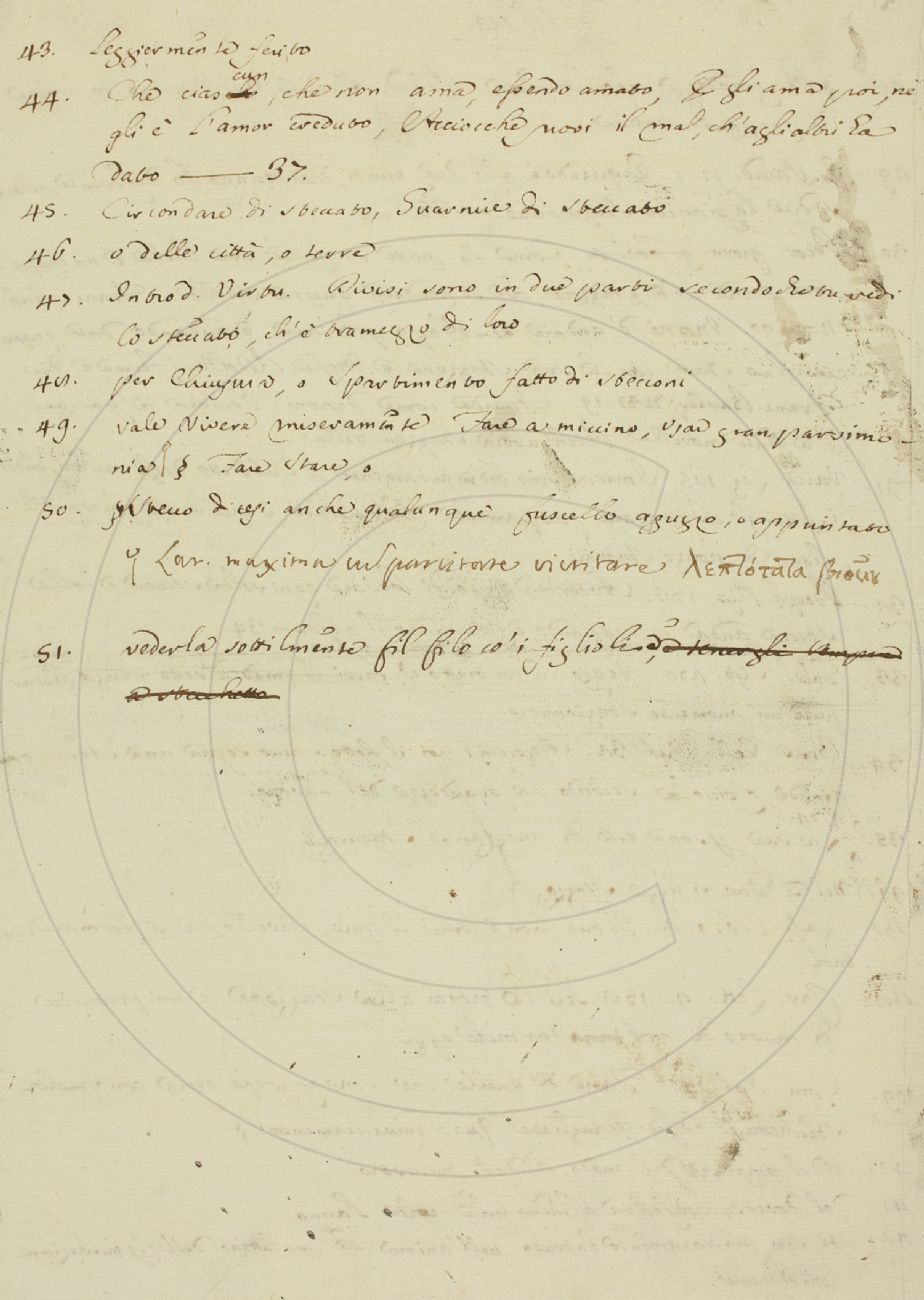 43. Leggierm̃nte ferito
44. Che ciascun, che non ama, essendo amato, Egli ama poi, nè
gli è l'amor creduto, Acciocchè provi il mal, ch'agli altri ha
dato —— 37.
45. Circondare di steccato, Guarnire di steccato
46. o delle città, o terre
47. Introd. Virtu. Divisi sono in due parti secondochè tu vedi
lo steccato, ch'è tramezzo di loro
48. per Chiusura, o Spartimento fatto di stecconi
49. vale vivere miseram̃nte Fare a miccino, usar gran parsimo-
nia § Fare stare, o
50. Stecco dicesi anche qualunque fuscello aguzzo, o appuntato
Lat. maxima cum parcitate victitare λεπτότατα βιοῦν
51. vederla sottilm̃nte fil filo co' i figlioli e tenergli sempre
a stecchetto